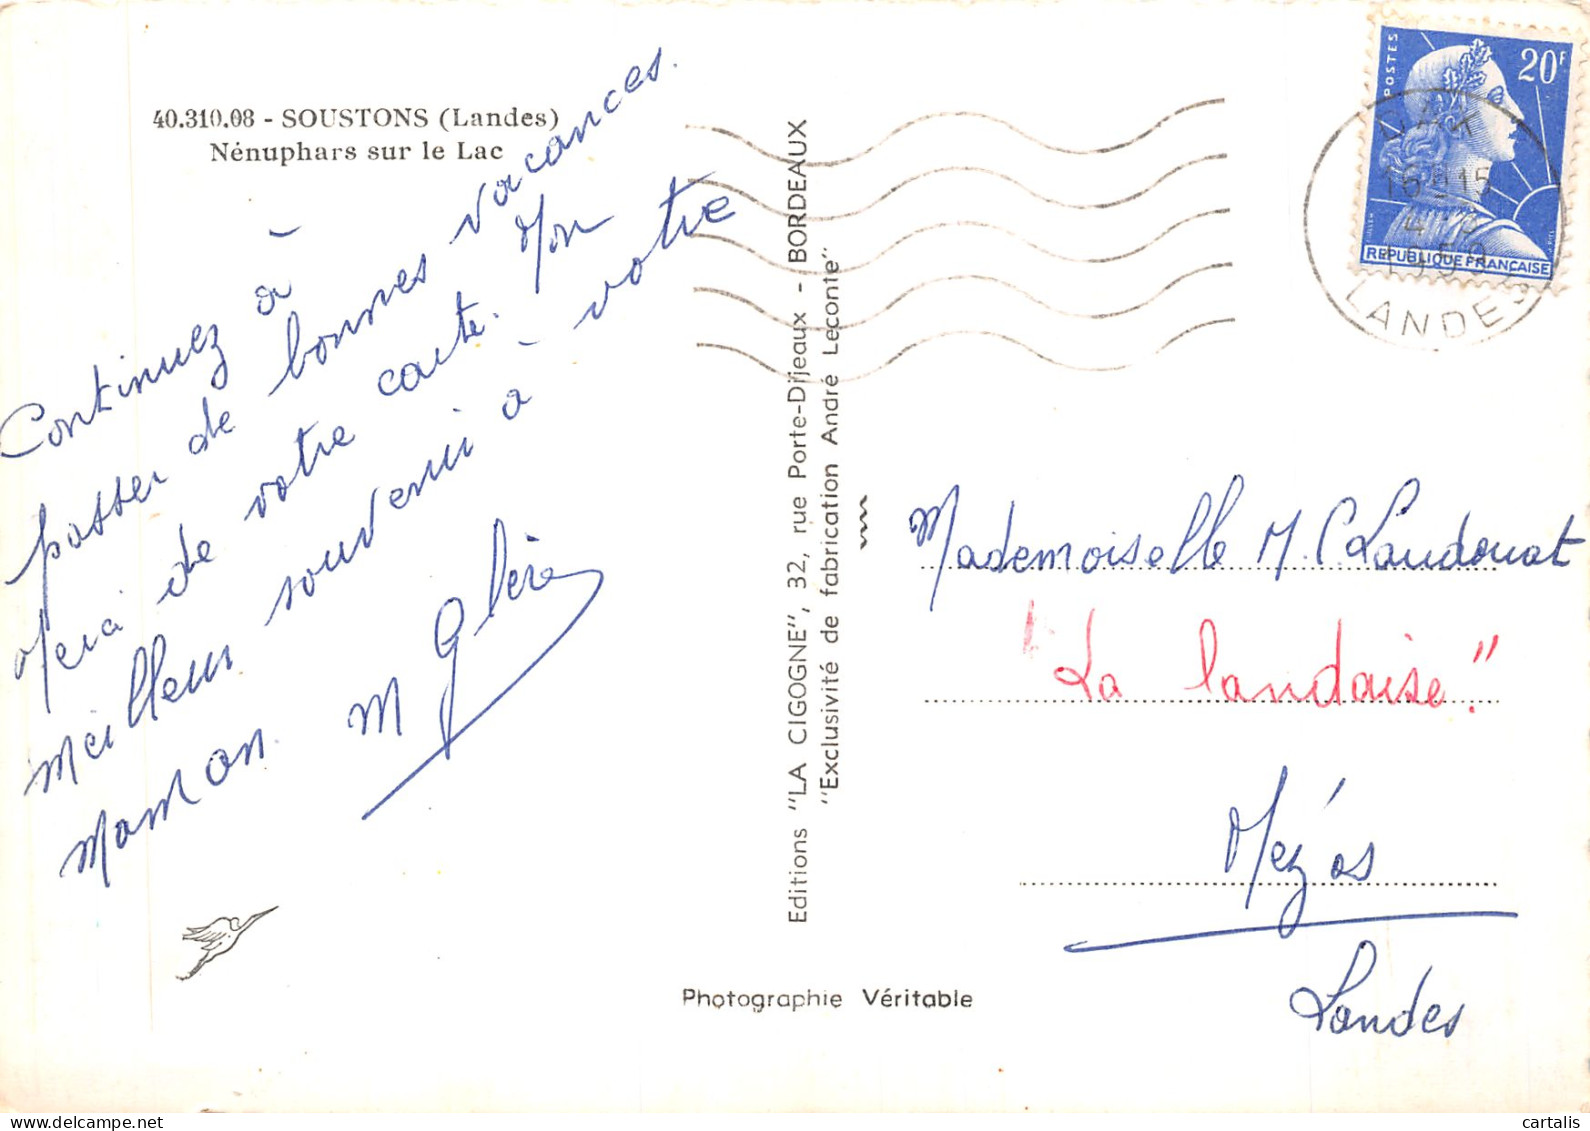 40.310.08 - SOUSTONS (Landes)
Nénuphars sur le Lac
Continuez à
passer de bonnes vacances.
Merci de votre carte. Mon
meilleur souvenir à votre
maman. M
Editions "LA CIGOGNE", 32, rue Porte-Dijeaux - BORDEAUX
"Exclusivité de fabrication André Leconte"
Photographie Véritable
POSTES
20F
REPUBLIQUE FRANÇAISE
DAX
16 H 15
1959
LANDES
Mademoiselle M. C. Laudouat
"La landaise."
Mézos
Landes
cartalis